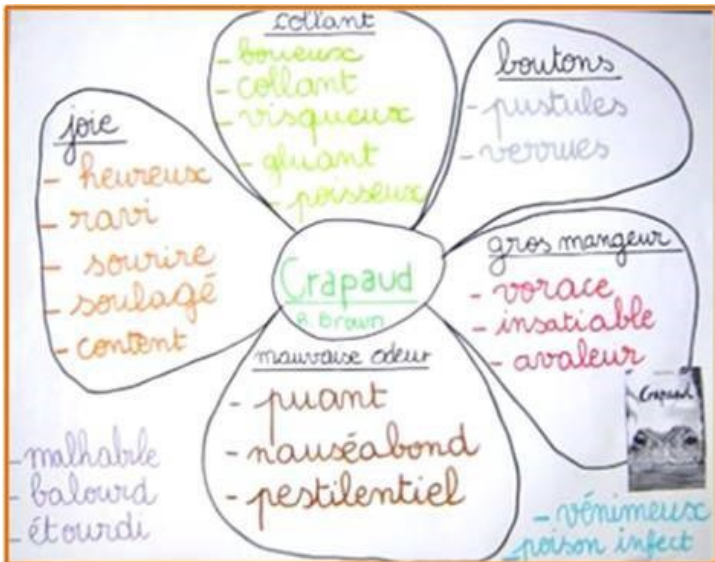 collant
- boueux
- collant
- visqueux
- gluant
- poisseux
boutons
- pustules
- verrues
joie
- heureux
- ravi
- sourire
- soulagé
- content
Crapaud
R. Brown
gros mangeur
- vorace
- insatiable
- avaleur
Crapaud
mauvaise odeur
- puant
- nauséabond
- pestilentiel
- malhabile
- balourd
- étourdi
- vénimeux
poison infect